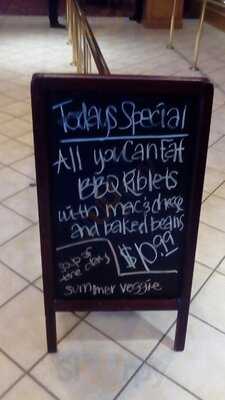 Todays Special
All you Can Eat
BBQ Riblets
with mac & cheese
and baked beans
$10.99
soup of
the day
summer veggie